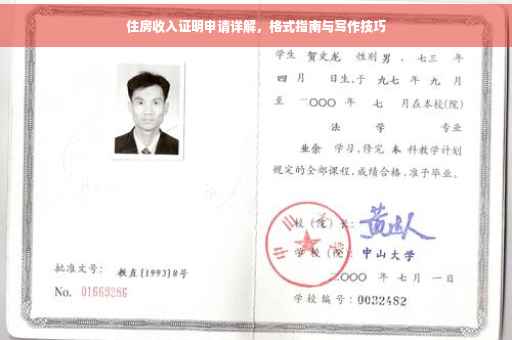 住房收入证明申请详解，格式指南与写作技巧
学生 贺文龙 性别 男 、七三 年
四 月 日生，于 九七 年 九 月
至 二〇〇〇 年 七 月在本校(院)
法 学 专业
业余 学习，修完 本 科教学计划
规定的全部课程，成绩合格，准予毕业。
校 (院) 长：
学 校 (院)： 中山大学
二〇〇〇 年 七 月 一 日
学校编号：0032482
批准文号： 教直(1993)8号
No. 01669286